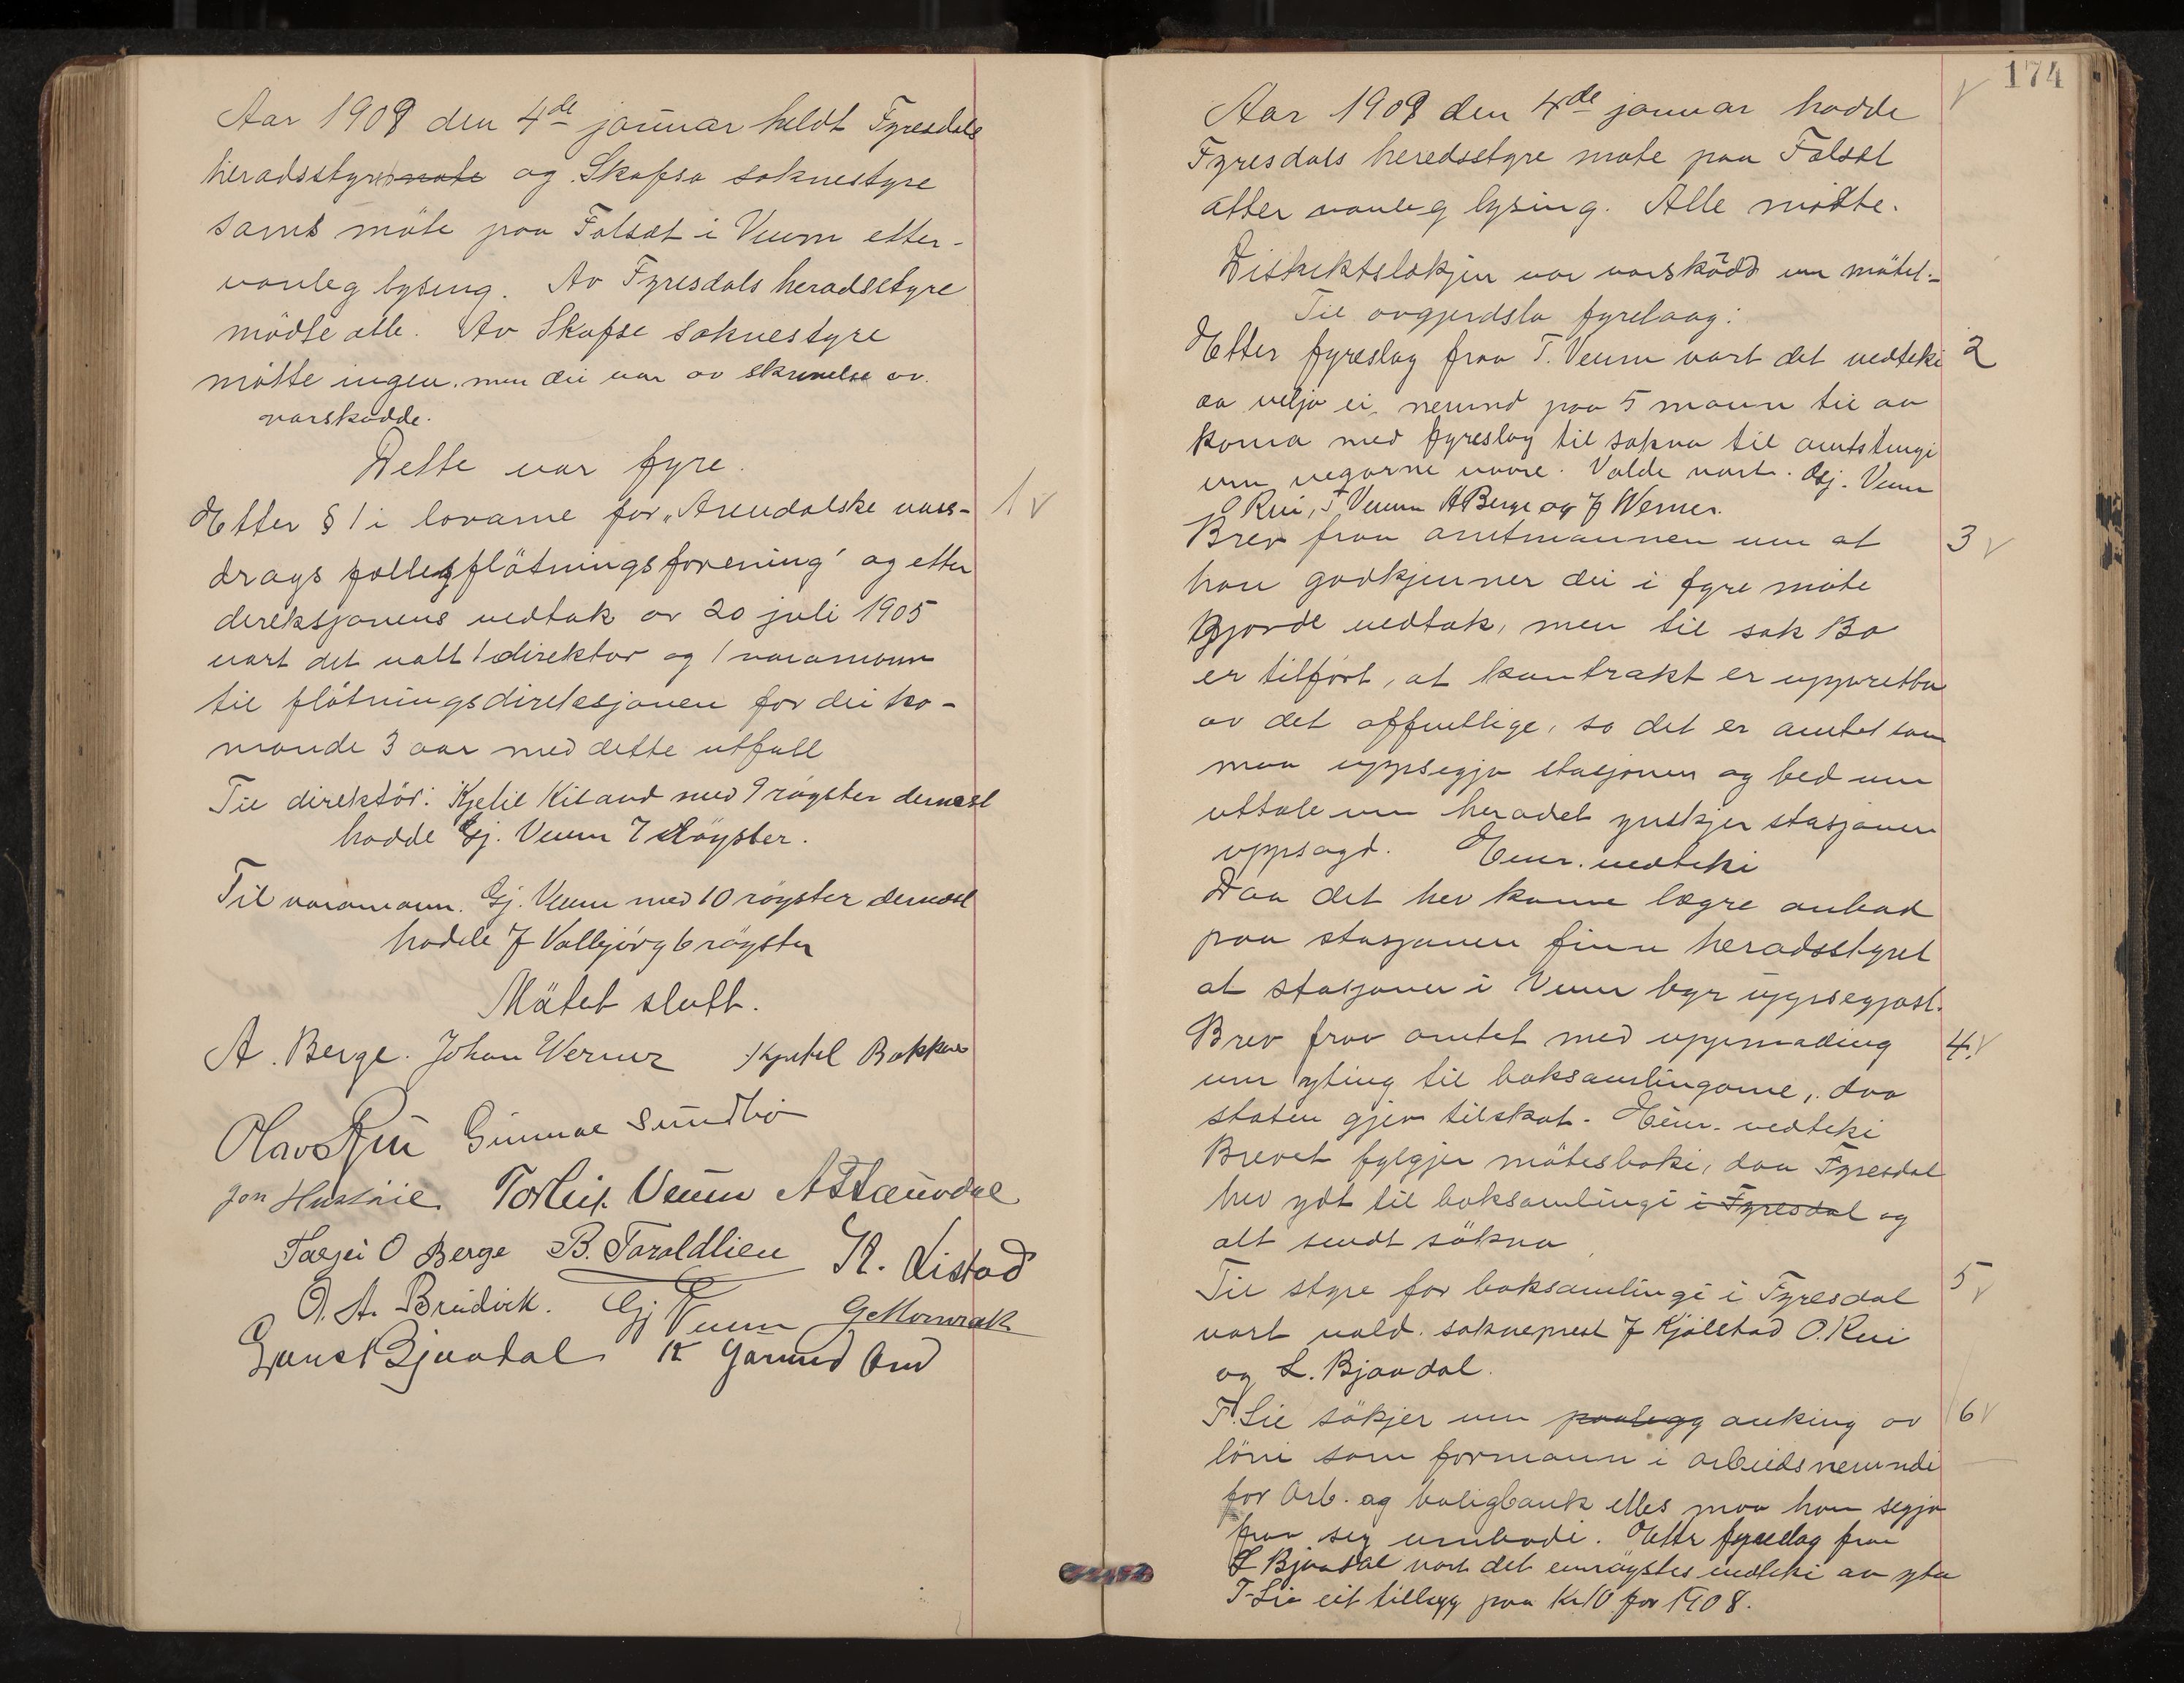 Aar 1909 den 4de januar heldt Fyresdals
heradsstyre møte og Skafsa soknestyre
sams møte paa Folsæt i Veum etter
vanleg lysing. Av Fyresdals heradsstyre
møtte alle. Av Skafse soknestyre
møtte ingen. men dei var av skrivelse av.
varskødde.
Dette var fyre.
Etter § 1 i lovarne for „Arendalske vass- 1 v
drags fellesflötningsforening' og etter
direksjonens vedtak av 20 juli 1905
vart det valt 1 direktør og 1 varamann
til flötningsdireksjonen for dei ko-
mande 3 aar med dette utfall
Til direktör: Kjetil Kiland med 9 röyster dernæst
hadde Gj. Veum 7 röyster.
Til varamann. Gj. Veum med 10 röyster dernæst
hadde J Valbjörg 6 röyster
Mötet slutt.
A. Berge. Johan Werner Kjetil Bakken
Olav Rui Gunnar Sundbö
Jon Hustvie. Torleif. Veum
Tarjei O Berge B. Taraldlien K. Listad
O. A. Breidvik. Gj Veum
Bjaadal K Garund
174
Aar 1909 den 4de januar hadde v
Fyresdals heredsstyre møte paa Folsæt
etter vanleg lysing. Alle møtte.
Distriktslækjen var varsködd um mötet.-
Til avgjerdsla fyrelaag:
Etter fyreslag fraa T. Veum vart det vedteki 2
aa velja ei nemnd paa 5 mann til aa
koma med fyreslag til søkna til amtstingi
um vegarne vaare. Valde vart. Gj. Veum
O Rui, T Veum A Berge og J Werner.
Brev fraa amtmannen um at 3 v
han godkjenner dei i fyre møte
gjorde vedtak, men til sak 13a
er tilført, at kontrakt er uppretta
av det offentlige, so det er amtet som
maa uppsegja stasjonen og bed um
uttale um heradet ynskjer stasjonen
uppsagd. Einr. vedteki
Daa det hev kome lægre anbod
paa stasjonen finn heradsstyret
at stasjonen i Veum byr uppsegjast.
Brev fraa amtet med uppmoding 4. v
um yting til boksamlingarne, daa
staten gjev tilskot. Einr. vedteki
Brevet fylgjer mötesboki, daa Fyresdal
hev ydt til boksamlingi i Fyresdal og
alt sendt sökna
Til styre for boksamlingi i Fyresdal 5 v
vart vald. sokneprest J Kjölstad O. Rui
og L. Bjaadal.
T. Lie søkjer um paalegg auking av 6 v
löni som formann i arbeidsnemndi
for Arb. og boligbank elles maa han segja
fraa seg umbodi. Etter fyreslag fraa
L Bjaadal vart det einröystes vedteki aa yta
T. Lie eit tillegg paa Kr 10 for 1908.